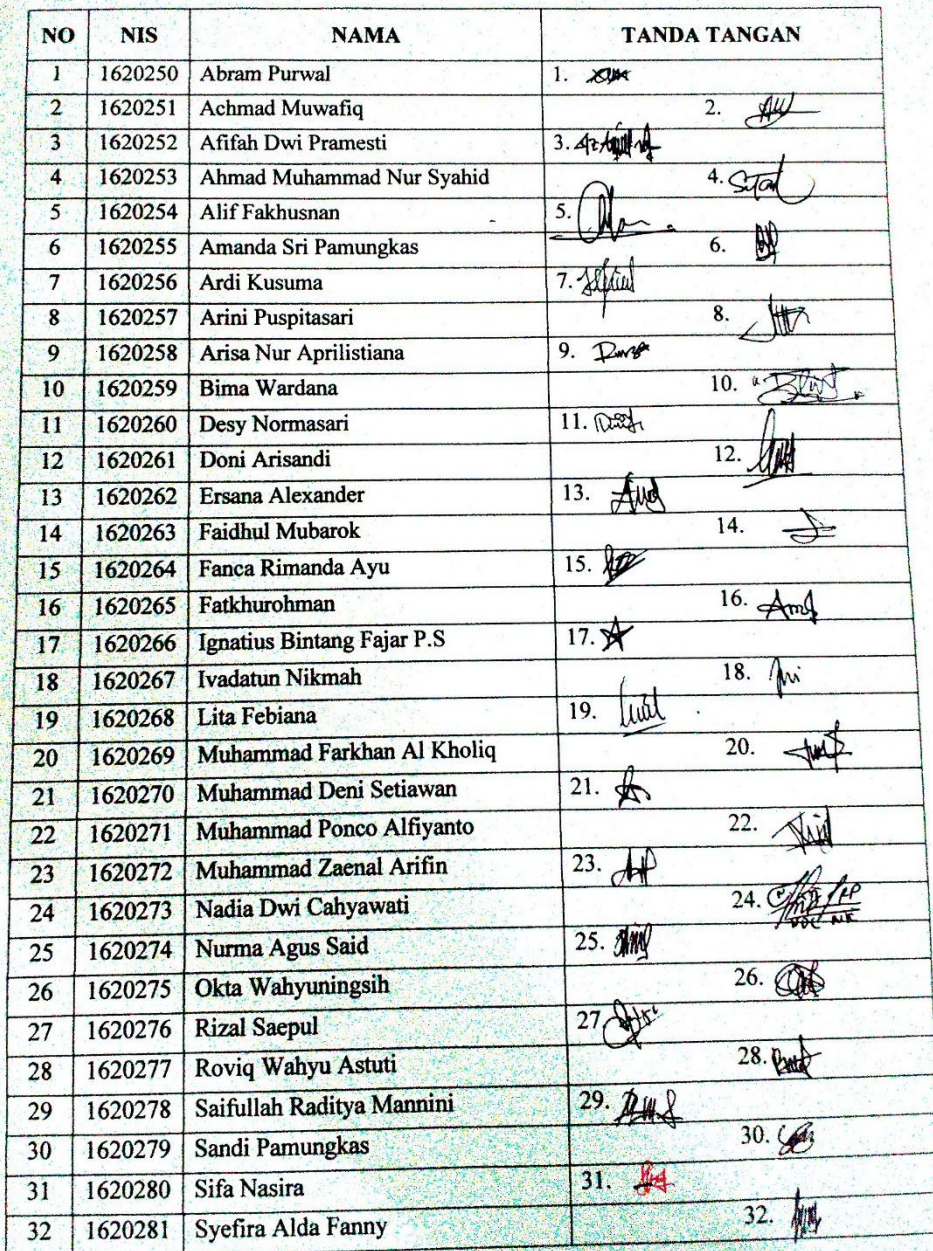 NO NIS NAMA TANDA TANGAN
1 1620250 Abram Purwal 1.
2 1620251 Achmad Muwafiq 2.
3 1620252 Afifah Dwi Pramesti 3.
4 1620253 Ahmad Muhammad Nur Syahid 4.
5 1620254 Alif Fakhusnan 5.
6 1620255 Amanda Sri Pamungkas 6.
7 1620256 Ardi Kusuma 7.
8 1620257 Arini Puspitasari 8.
9 1620258 Arisa Nur Aprilistiana 9.
10 1620259 Bima Wardana 10.
11 1620260 Desy Normasari 11.
12 1620261 Doni Arisandi 12.
13 1620262 Ersana Alexander 13.
14 1620263 Faidhul Mubarok 14.
15 1620264 Fanca Rimanda Ayu 15.
16 1620265 Fatkhurohman 16.
17 1620266 Ignatius Bintang Fajar P.S 17.
18 1620267 Ivadatun Nikmah 18.
19 1620268 Lita Febiana 19.
20 1620269 Muhammad Farkhan Al Kholiq 20.
21 1620270 Muhammad Deni Setiawan 21.
22 1620271 Muhammad Ponco Alfiyanto 22.
23 1620272 Muhammad Zaenal Arifin 23.
24 1620273 Nadia Dwi Cahyawati 24.
25 1620274 Nurma Agus Said 25.
26 1620275 Okta Wahyuningsih 26.
27 1620276 Rizal Saepul 27
28 1620277 Roviq Wahyu Astuti 28.
29 1620278 Saifullah Raditya Mannini 29.
30 1620279 Sandi Pamungkas 30.
31 1620280 Sifa Nasira 31.
32 1620281 Syefira Alda Fanny 32.